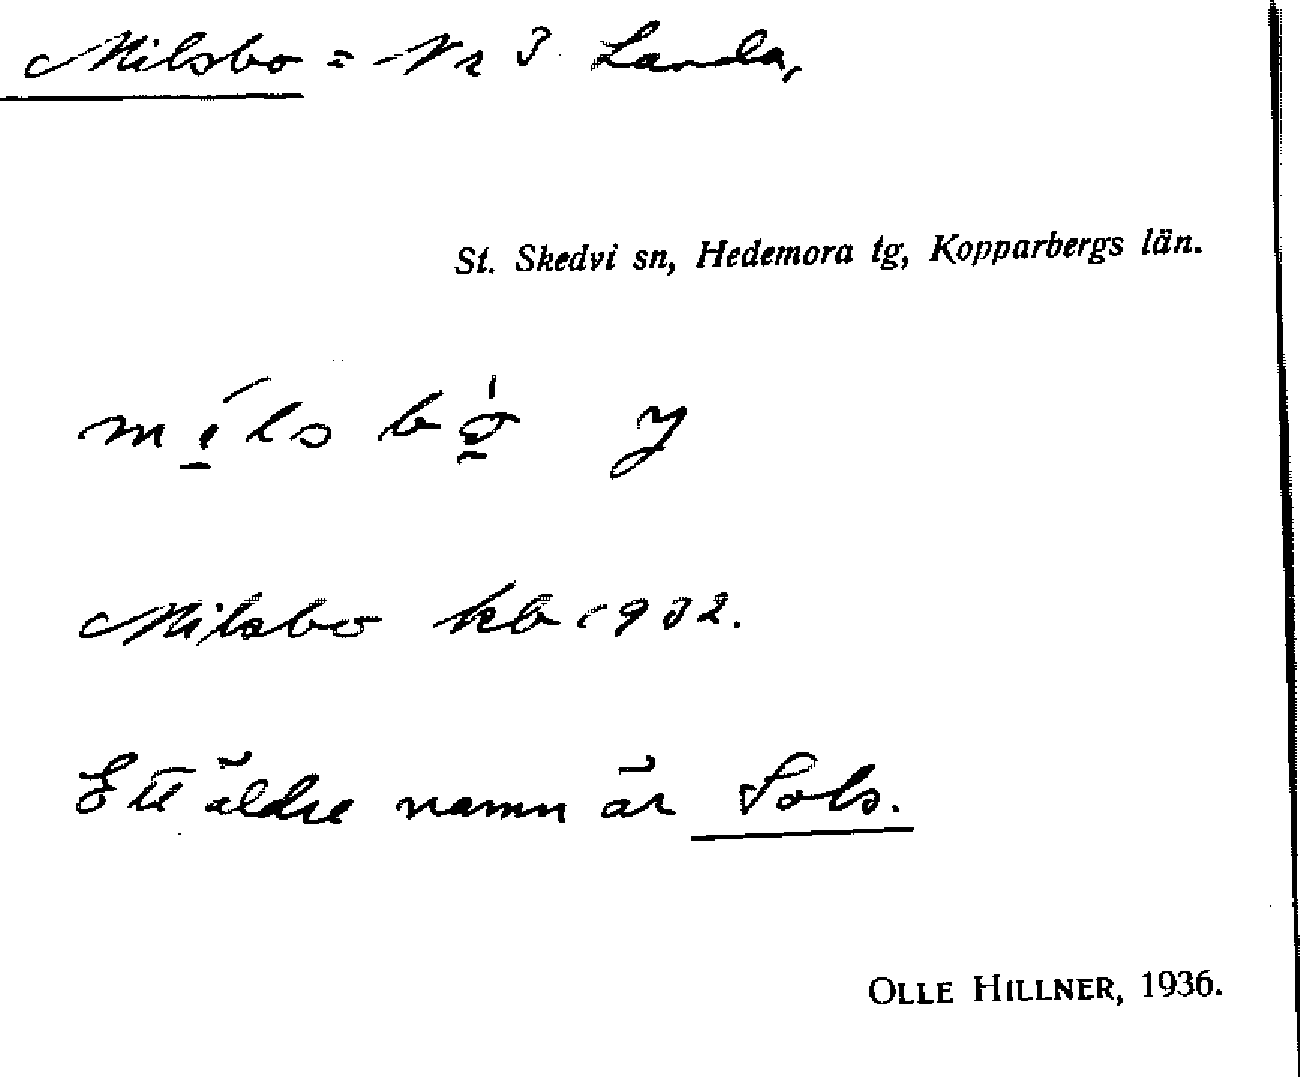 Milsbo = Nr 3 Landa,
St. Skedvi sn, Hedemora tg, Kopparbergs län.
mils bo y
Milsbo kb 1932.
Ett äldre namn är Sols.
OLLE HILLNER, 1936.